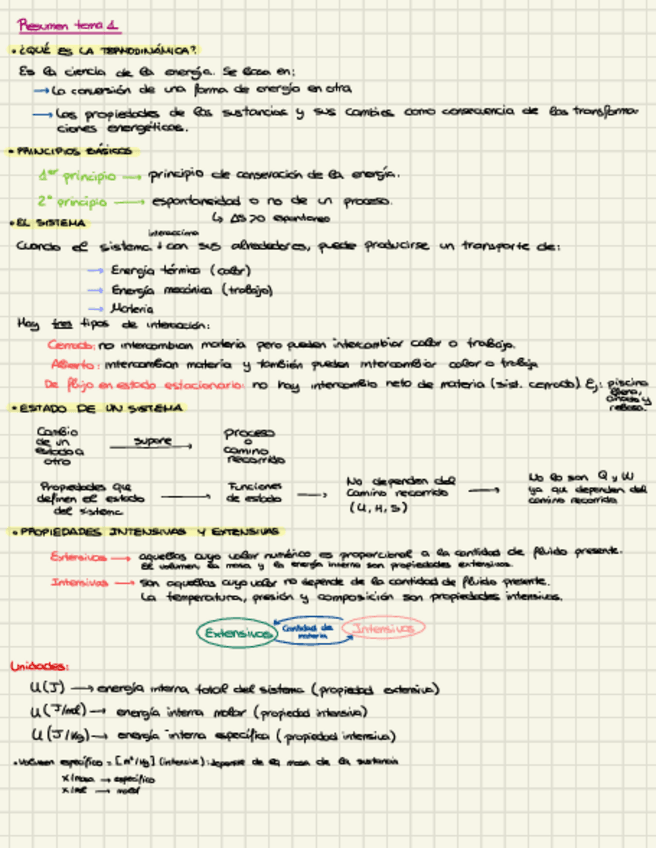 Resumen tema 1
• ¿QUÉ ES LA TERMODINÁMICA?
Es la ciencia de la energía. Se basa en:
→ La conversión de una forma de energía en otra
→ Las propiedades de las sustancias y sus cambios como consecuencia de las transforma-
ciones energéticas.
• PRINCIPIOS BÁSICOS
1er principio → principio de conservación de la energía.
2º principio → espontaneidad o no de un proceso.
↳ ΔS>0 espontaneo
• EL SISTEMA
interacciona
Cuando el sistema + con sus alrededores, puede producirse un transporte de:
→ Energía térmica (calor)
→ Energía mecánica (trabajo)
→ Materia
Hay tres tipos de interacción:
Cerrado: no intercambian materia pero pueden intercambiar calor o trabajo.
Abierto: intercambian materia y también pueden intercambiar calor o trabajo
De flujo en estado estacionario: no hay intercambio neto de materia (sist. cerrado). Ej: piscina
llena,
y
rebosa.
• ESTADO DE UN SISTEMA
Cambio
de un
estado a
otro
supone →
proceso
o
camino
recorrido
Propiedades que
definen el estado
del sistema
→ Funciones
de estado
→ No dependen del
camino recorrido
(U, H, S)
→ No lo son Q y W
ya que dependen del
camino recorrido
• PROPIEDADES INTENSIVAS Y EXTENSIVAS
Extensivas → aquellas cuyo valor numérico es proporcional a la cantidad de fluido presente.
El volumen, la masa y la energía interna son propiedades extensivas.
Intensivas → son aquellas cuyo valor no depende de la cantidad de fluido presente.
La temperatura, presión y composición son propiedades intensivas.
Extensivas
Cantidad de
materia
Intensivas
Unidades:
U (J) → energía interna total del sistema (propiedad extensiva)
U (J/mol) → energía interna molar (propiedad intensiva)
U (J/Kg) → energía interna específica (propiedad intensiva)
• Volumen específico = [m³/Kg] (intensiva): depende de la masa de la sustancia
x/masa → específico
x/mol → molar